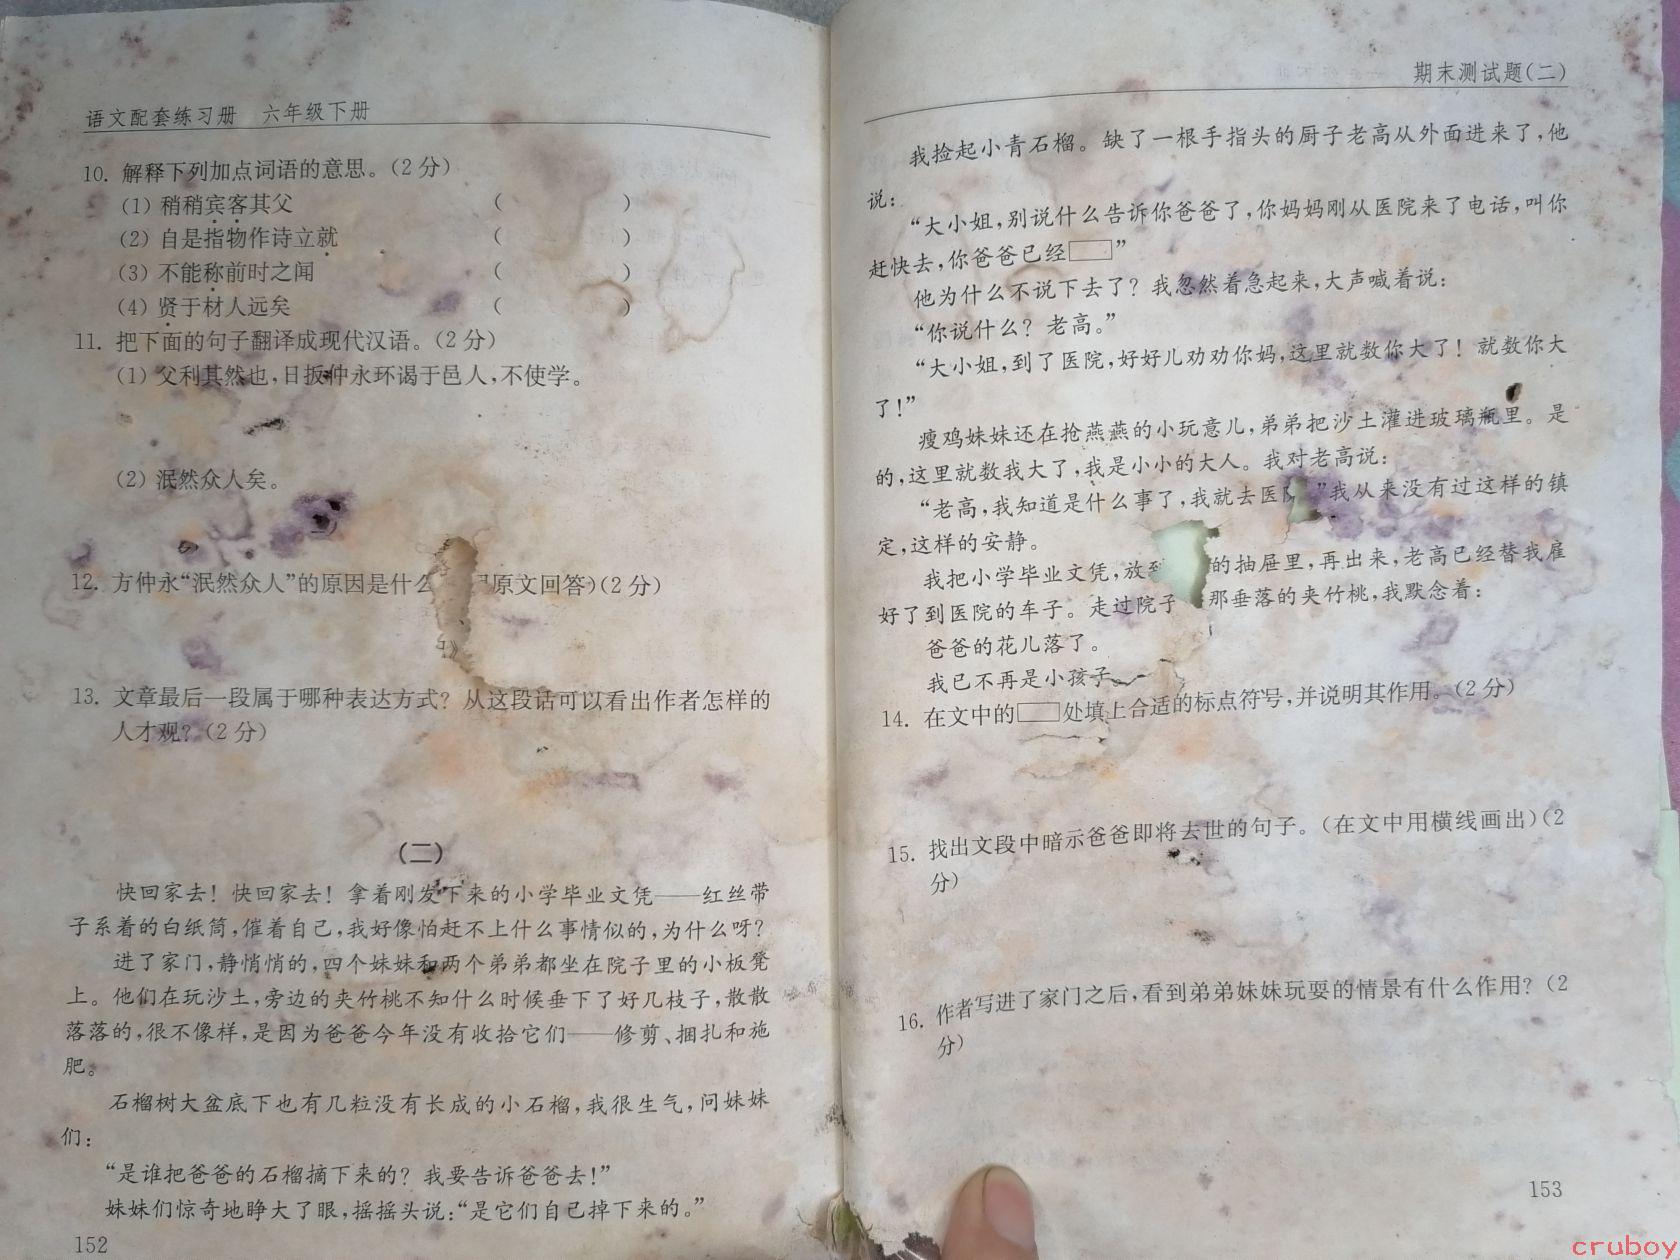 语文配套练习册 六年级下册
10. 解释下列加点词语的意思。(2分)
(1) 稍稍宾客其父 ( )
(2) 自是指物作诗立就 ( )
(3) 不能称前时之闻 ( )
(4) 贤于材人远矣 ( )
11. 把下面的句子翻译成现代汉语。(2分)
(1) 父利其然也,日扳仲永环谒于邑人,不使学。
(2) 泯然众人矣。
12. 方仲永“泯然众人”的原因是什么 原文回答)(2分)
13. 文章最后一段属于哪种表达方式? 从这段话可以看出作者怎样的
人才观? (2分)
(二)
快回家去! 快回家去! 拿着刚发下来的小学毕业文凭——红丝带
子系着的白纸筒,催着自己,我好像怕赶不上什么事情似的,为什么呀?
进了家门,静悄悄的,四个妹妹和两个弟弟都坐在院子里的小板凳
上。他们在玩沙土,旁边的夹竹桃不知什么时候垂下了好几枝子,散散
落落的,很不像样,是因为爸爸今年没有收拾它们——修剪、捆扎和施
肥。
石榴树大盆底下也有几粒没有长成的小石榴,我很生气,问妹妹
们:
“是谁把爸爸的石榴摘下来的? 我要告诉爸爸去!”
妹妹们惊奇地睁大了眼,摇摇头说:“是它们自己掉下来的。”
152
期末测试题(二)
我捡起小青石榴。缺了一根手指头的厨子老高从外面进来了,他
说:
“大小姐,别说什么告诉你爸爸了,你妈妈刚从医院来了电话,叫你
赶快去,你爸爸已经 ”
他为什么不说下去了? 我忽然着急起来,大声喊着说:
“你说什么? 老高。”
“大小姐,到了医院,好好儿劝劝你妈,这里就数你大了! 就数你大
了!”
瘦鸡妹妹还在抢燕燕的小玩意儿,弟弟把沙土灌进玻璃瓶里。是
的,这里就数我大了,我是小小的大人。我对老高说:
“老高,我知道是什么事了,我就去医 ”我从来没有过这样的镇
定,这样的安静。
我把小学毕业文凭,放到 的抽屉里,再出来,老高已经替我雇
好了到医院的车子。走过院子 那垂落的夹竹桃,我默念着:
爸爸的花儿落了。
我已不再是小孩子。
14. 在文中的 处填上合适的标点符号,并说明其作用。(2分)
15. 找出文段中暗示爸爸即将去世的句子。(在文中用横线画出)(2
分)
16. 作者写进了家门之后,看到弟弟妹妹玩耍的情景有什么作用? (2
分)
153
cruboy